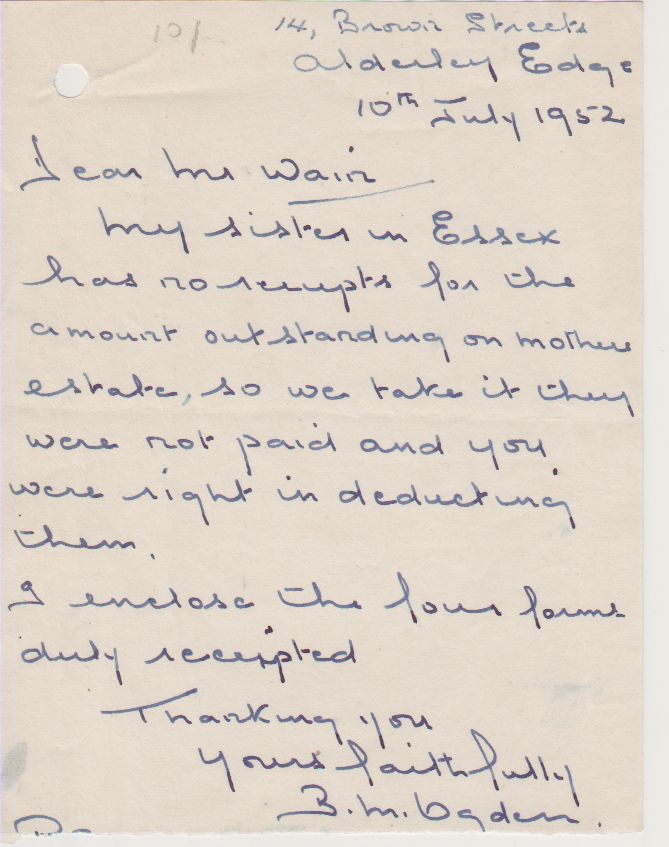 10/-
14, Brown Street
Alderley Edge
10th July 1952
Dear Mr Wain
My sister in Essex
has no receipts for the
amount outstanding on mothers
estate, so we take it they
were not paid and you
were right in deducting
them.
I enclose the four forms
duly receipted
Thanking you
Yours faithfully
B. M. Ogden.